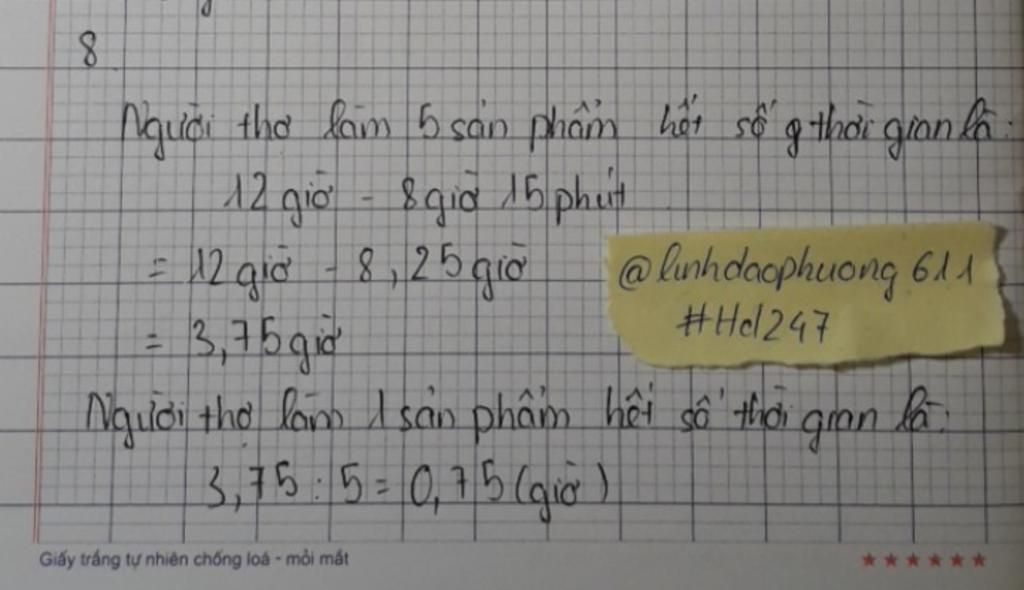 8
Người thợ làm 5 sản phẩm hết số g thời gian là:
12 giờ - 8 giờ 15 phút
= 12 giờ - 8,25 giờ
= 3,75 giờ
@linhdaophuong611
#Hd247
Người thợ làm 1 sản phẩm hết số thời gian là:
3,75 : 5 = 0,75 (giờ)
Giấy trắng tự nhiên chống loá - mỏi mắt